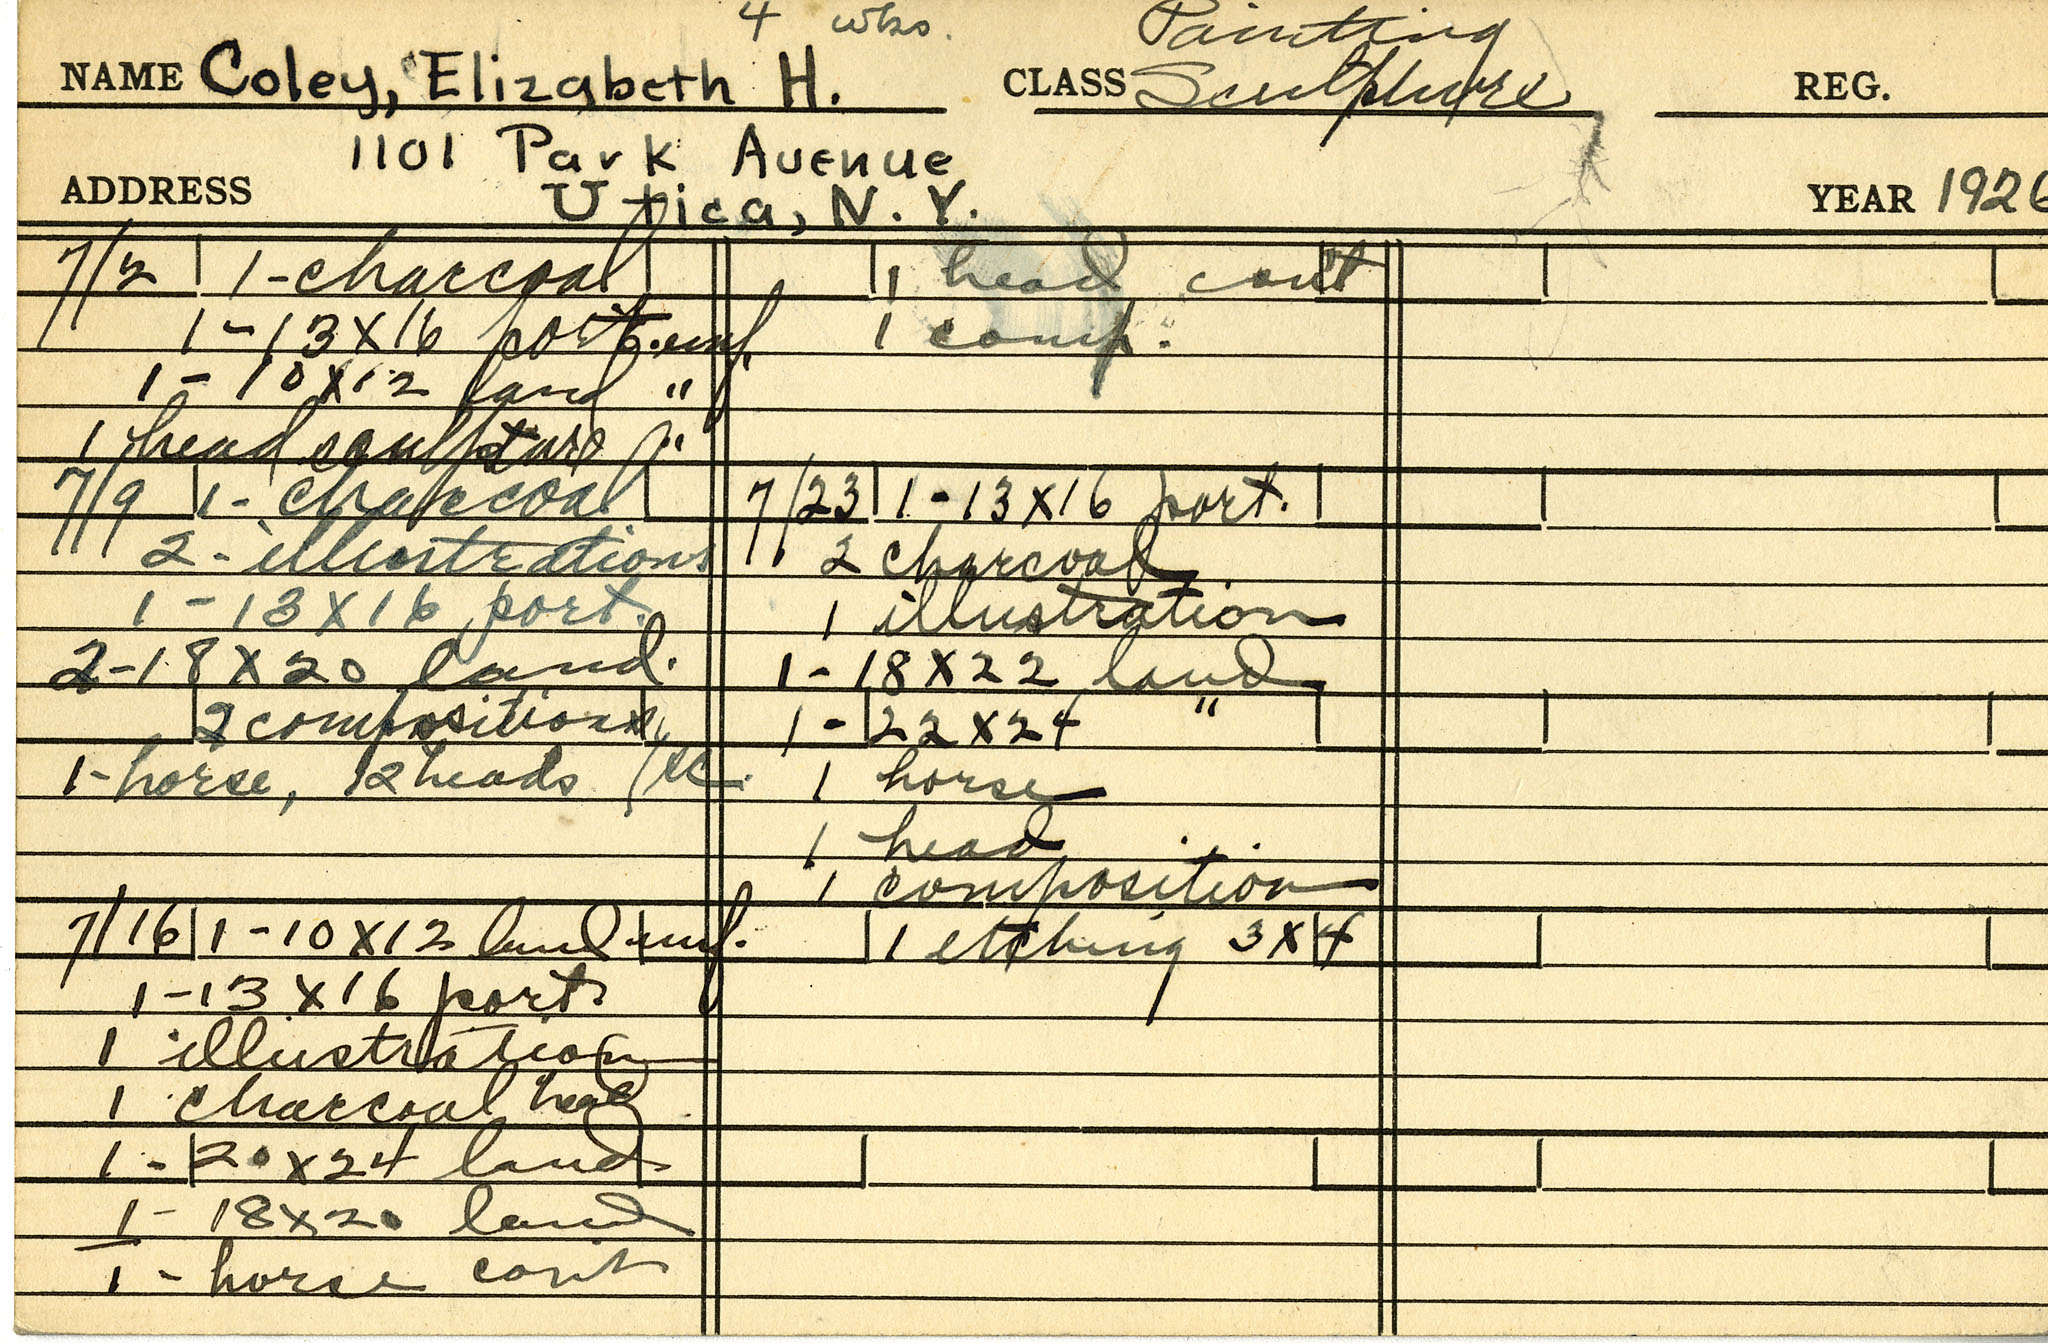 4 wks.
Painting
NAME Coley, Elizabeth H. CLASS Sculpture REG.
1101 Park Avenue
ADDRESS Utica, N.Y. YEAR 1926
7/2 1-charcoal
1-13X16 port. unf.
1-10X12 land "
1 head sculpture "
7/9 1-charcoal
2-illustrations
1-13X16 port.
2-18X20 land.
2 compositions
1-horse, 2 heads
7/16 1-10X12 land. unf.
1-13X16 port.
1 illustration
1 charcoal head
1-20X24 land
1-18X20 land
1-horse con't
1 head con't
1 comp.
7/23 1-13X16 port.
2 charcoal
1 illustration
1-18X22 land
1-22X24 "
1 horse
1 head
1 composition
1 etching 3X4